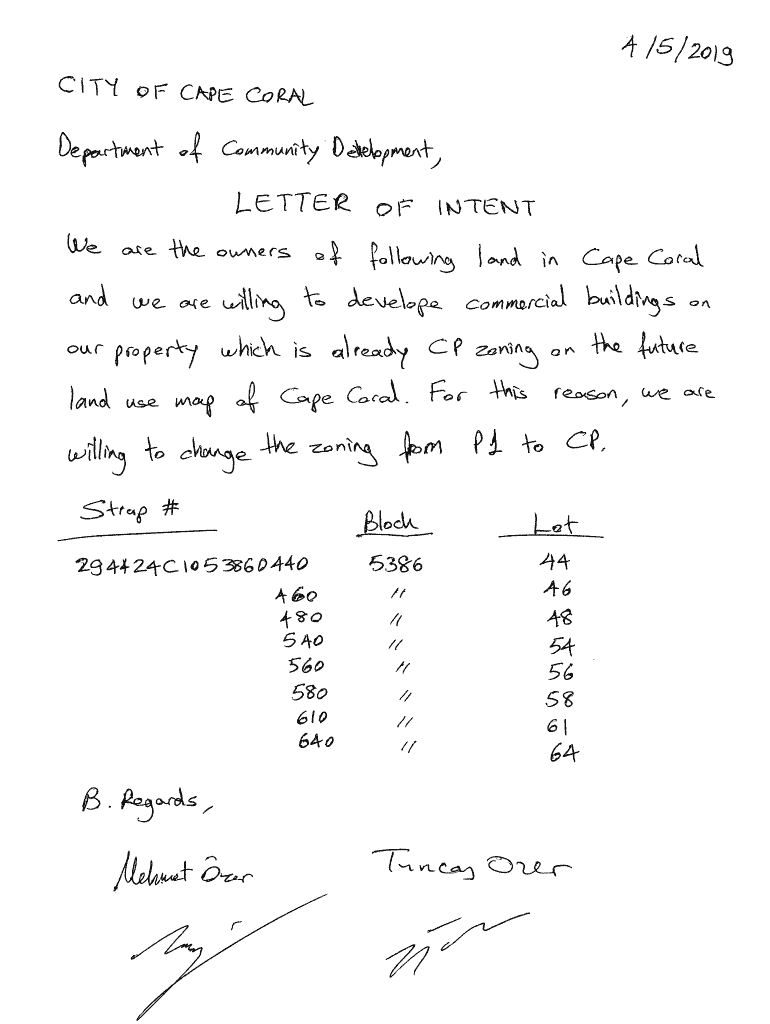 4/5/2019
CITY OF CAPE CORAL
Department of Community Development,
LETTER OF INTENT
We are the owners of following land in Cape Coral
and we are willing to develope commercial buildings on
our property which is already CP zoning on the future
land use map of Cape Coral. For this reason, we are
willing to change the zoning from P1 to CP.
Strap # Block Lot
294424C1053860440 5386 44
460 " 46
480 " 48
540 " 54
560 " 56
580 " 58
610 " 61
640 " 64
B. Regards,
Mehmet Özer Tuncay Ozer